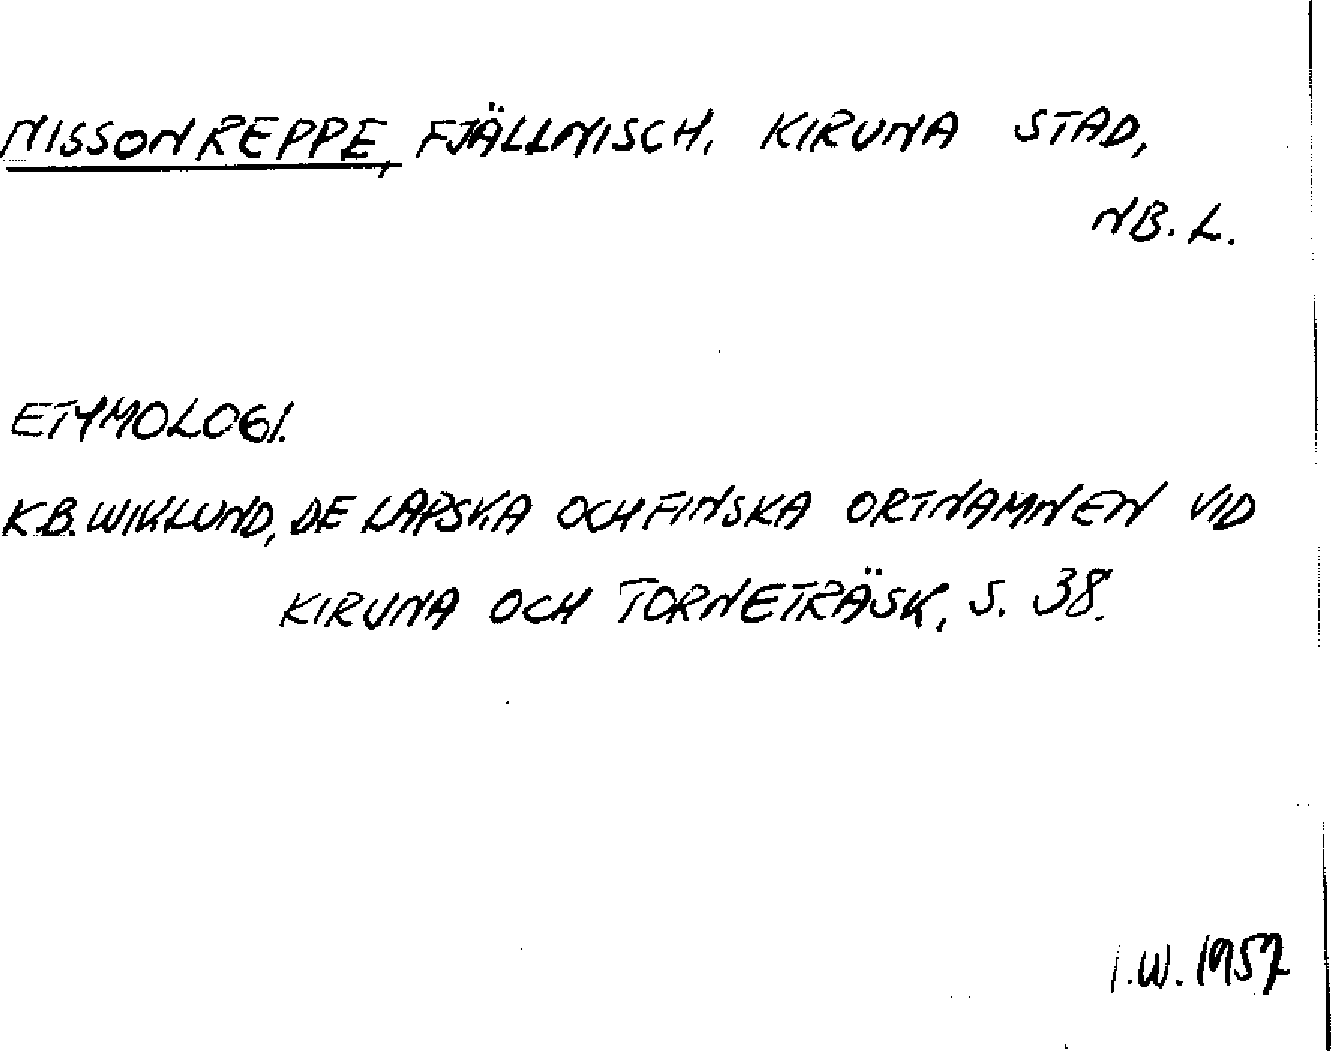 NISSONREPPE, FJÄLLNISCH, KIRUNA STAD,
NB. L.
ETYMOLOGI.
K.B. WIKLUND, DE LAPSKA OCH FINSKA ORTNAMNEN VID
KIRUNA OCH TORNETRÄSK, S. 38.
I.W. 1957